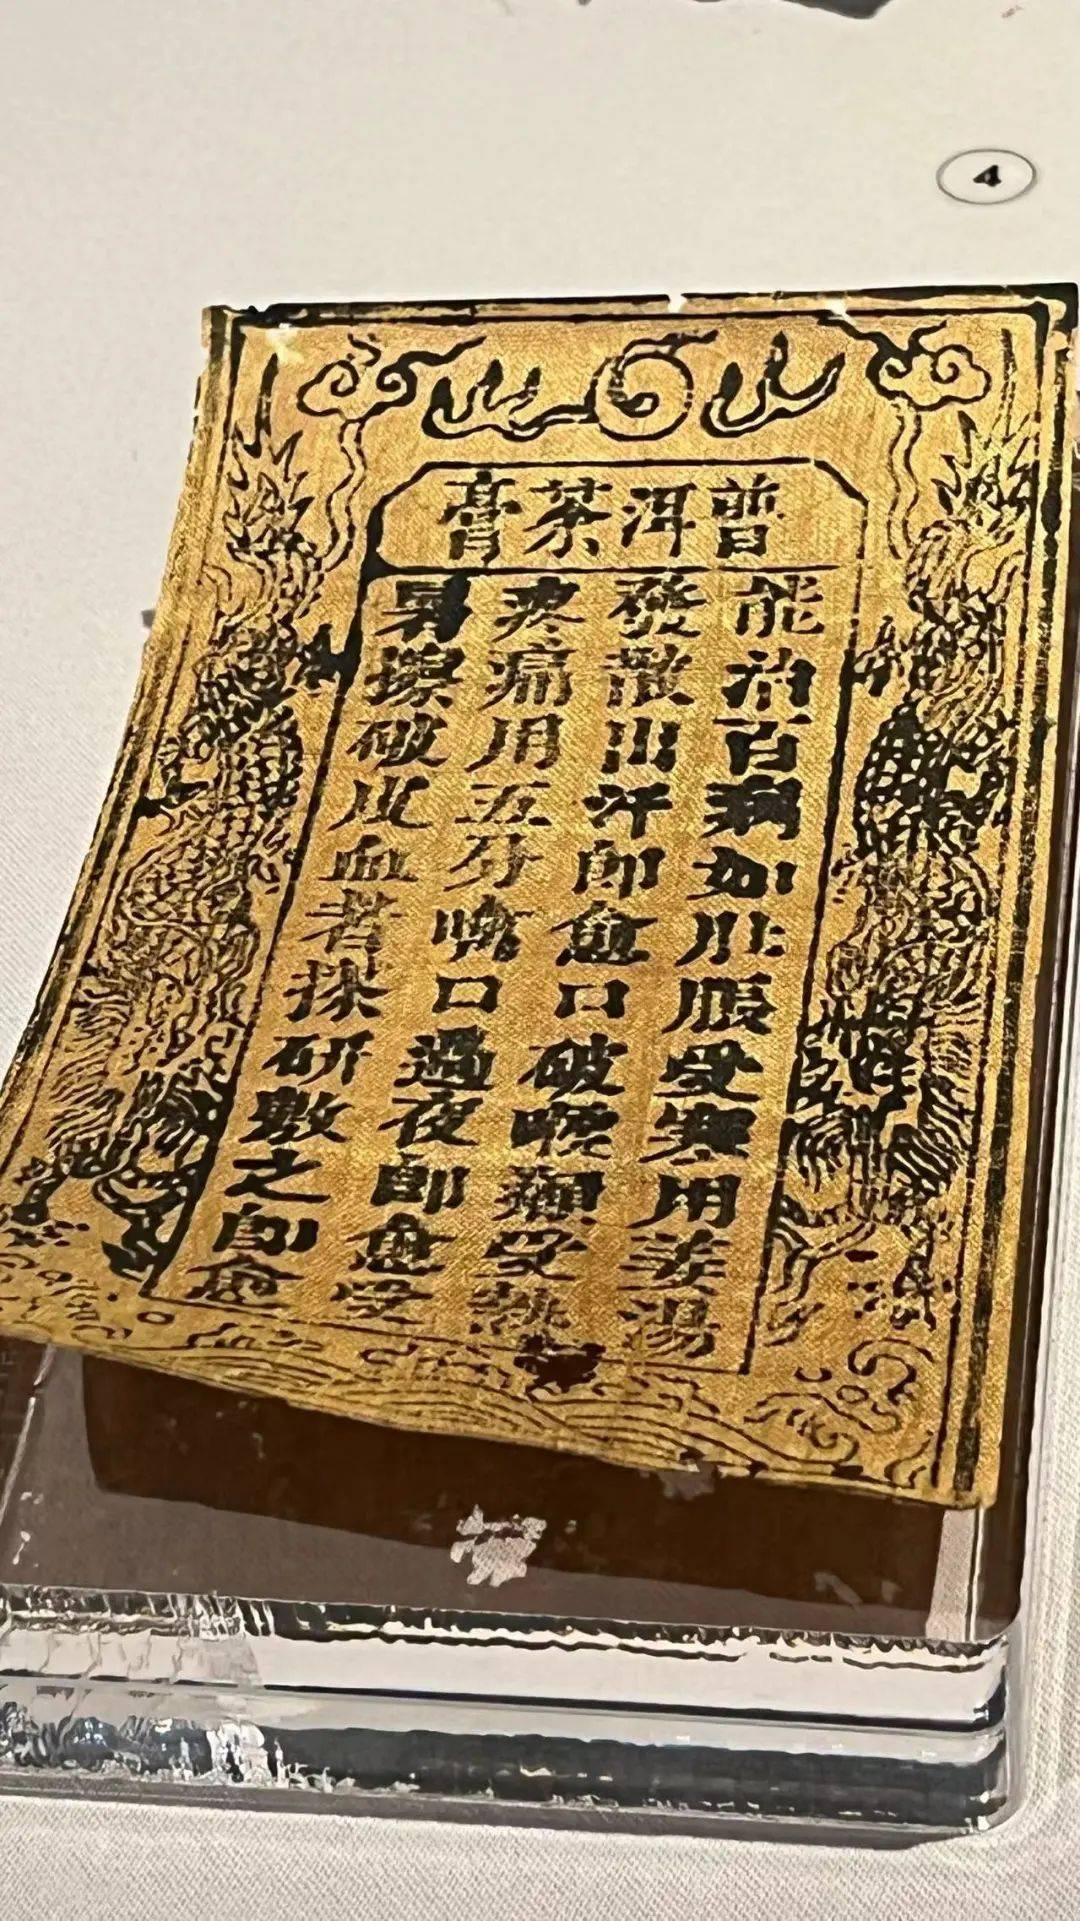 4
普洱茶膏
能治百病如肚脹受寒用姜湯
發散出汗即愈口破喉顙受熱
疼痛用五分噙口過夜即愈受
暑擦破皮血者搽研敷之即愈